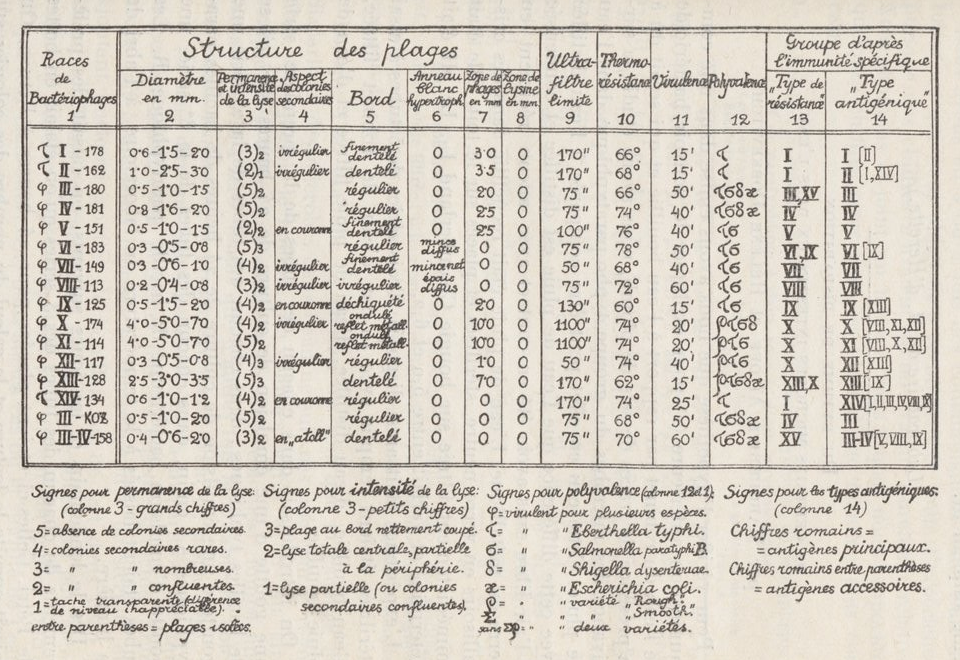 Races de Bactériophages 1 | Structure des plages | Ultra-filtre limite 9 | Thermo-résistance 10 | Virulence 11 | Polyvalence 12 | Groupe d'après l'immunité spécifique
Diamètre en mm. 2 | Permanence et intensité de la lyse 3 | Aspect des colonies secondaires 4 | Bord 5 | Anneau blanc hypertroph. 6 | Zone de phages en mm 7 | Zone de lysine en mm. 8 | "Type de résistance" 13 | "Type antigénique" 14
τ I - 178 | 0·6-1·5-2·0 | (3)2 | irrégulier | finement dentelé | 0 | 3·0 | 0 | 170" | 66° | 15' | τ | I | I [II]
τ II - 162 | 1·0-2·5-3·0 | (2)1 | irrégulier | dentelé | 0 | 3·5 | 0 | 170" | 68° | 15' | τ | I | II [I,XIV]
φ III - 180 | 0·5-1·0-1·5 | (5)2 | régulier | 0 | 2·0 | 0 | 75" | 66° | 50' | τσδæ | III,XV | III
φ IV - 181 | 0·8-1·6-2·0 | (5)2 | régulier | 0 | 2·5 | 0 | 75" | 74° | 40' | τσδæ | IV | IV
φ V - 151 | 0·5-1·0-1·5 | (2)2 | en couronne | finement dentelé | 0 | 2·5 | 0 | 100" | 76° | 40' | τσ | V | V
φ VI - 183 | 0·3-0·5-0·8 | (5)3 | régulier | mince diffus | 0 | 0 | 75" | 78° | 50' | τσ | VI,IX | VI [IX]
φ VII - 149 | 0·3-0·6-1·0 | (4)2 | irrégulier | finement dentelé | mince net | 0 | 0 | 50" | 68° | 40' | τσ | VII | VII
φ VIII - 113 | 0·2-0·4-0·8 | (3)2 | irrégulier | irrégulier | épais diffus | 0 | 0 | 75" | 72° | 60' | τσ | VIII | VIII
φ IX - 125 | 0·5-1·5-2·0 | (4)2 | en couronne | déchiqueté | 0 | 2·0 | 0 | 130" | 60° | 15' | τσ | IX | IX [XIII]
φ X - 174 | 4·0-5·0-7·0 | (4)2 | irrégulier | ondulé reflet métall. | 0 | 10·0 | 0 | 1100" | 74° | 20' | ρτσδ | X | X [VIII,XI,XII]
φ XI - 114 | 4·0-5·0-7·0 | (5)2 | ondulé reflet métall. | 0 | 10·0 | 0 | 1100" | 74° | 20' | ρτσ | X | XI [VIII,X,XII]
φ XII - 117 | 0·3-0·5-0·8 | (4)3 | irrégulier | régulier | 0 | 1·0 | 0 | 50" | 74° | 40' | ρτσ | X | XII [XIII]
φ XIII - 128 | 2·5-3·0-3·5 | (5)3 | dentelé | 0 | 7·0 | 0 | 170" | 62° | 15' | ρτσδæ | XIII,X | XIII [IX]
τ XIV - 134 | 0·6-1·0-1·2 | (4)2 | en couronne | régulier | 0 | 0 | 0 | 170" | 74° | 25' | τ | I
φ III - KOZ | 0·5-1·0-2·0 | (5)2 | régulier | 0 | 0 | 0 | 75" | 68° | 50' | τσδæ | IV | III
φ III-IV - 158 | 0·4-0·6-2·0 | (3)2 | en "atoll" | dentelé | 0 | 0 | 0 | 75" | 70° | 60' | τσδæ | XV | III-IV [V,VIII,IX]
Signes pour permanence de la lyse:
(colonne 3 - grands chiffres)
5 = absence de colonies secondaires.
4 = colonies secondaires rares.
3 = " " nombreuses.
2 = " " confluentes.
1 = tache transparente (différence
de niveau inappréciable).
entre parenthèses = plages isolées.
Signes pour intensité de la lyse:
(colonne 3 - petits chiffres)
3 = plage au bord nettement coupé.
2 = lyse totale centrale, partielle
à la périphérie.
1 = lyse partielle (ou colonies
secondaires confluentes).
Signes pour polyvalence (colonne 12 et 1):
φ = virulent pour plusieurs espèces.
τ = " " Eberthella typhi.
σ = " " Salmonella paratyphi B.
δ = " " Shigella dysenteriae.
æ = " " Escherichia coli.
ρ = " " variété "Rough".
Σ " " "Smooth".
sans Σρ = " " deux variétés.
Signes pour les types antigéniques:
(colonne 14)
Chiffres romains =
= antigènes principaux.
Chiffres romains entre parenthèses
= antigènes accessoires.